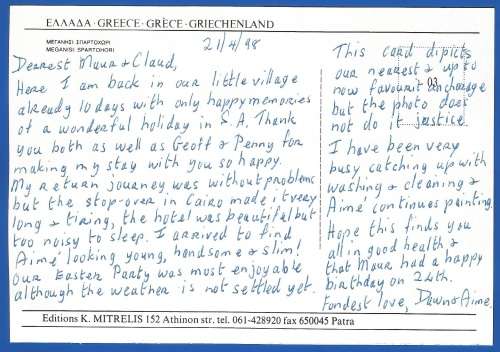 ΕΛΛΑΔΑ · GREECE · GRÈCE · GRIECHENLAND
ΜΕΓΑΝΗΣΙ ΣΠΑΡΤΟΧΩΡΙ
MEGANISI SPARTOHORI
21/4/98
Dearest Maur & Claud,
Here I am back in our little village
already 10 days with only happy memories
of a wonderful holiday in S.A. Thank
you both as well as Geoff & Penny for
making my stay with you so happy.
My return journey was without problems
but the stop-over in Cairo made it very
long & tiring, the hotel was beautiful but
too noisy to sleep. I arrived to find
Aimé looking young, handsome & slim!
Our Easter Party was most enjoyable
although the weather is not settled yet.
This card dipicts
our nearest & up to
now favourit anchorage
but the photo does
not do it justice.
I have been very
busy catching up with
washing & cleaning &
Aimé continues painting.
Hope this finds you
all in good health &
that Maur had a happy
birthday on 24th.
Fondest love, Dawn & Aimé.
03
Editions K. MITRELIS 152 Athinon str. tel. 061-428920 fax 650045 Patra